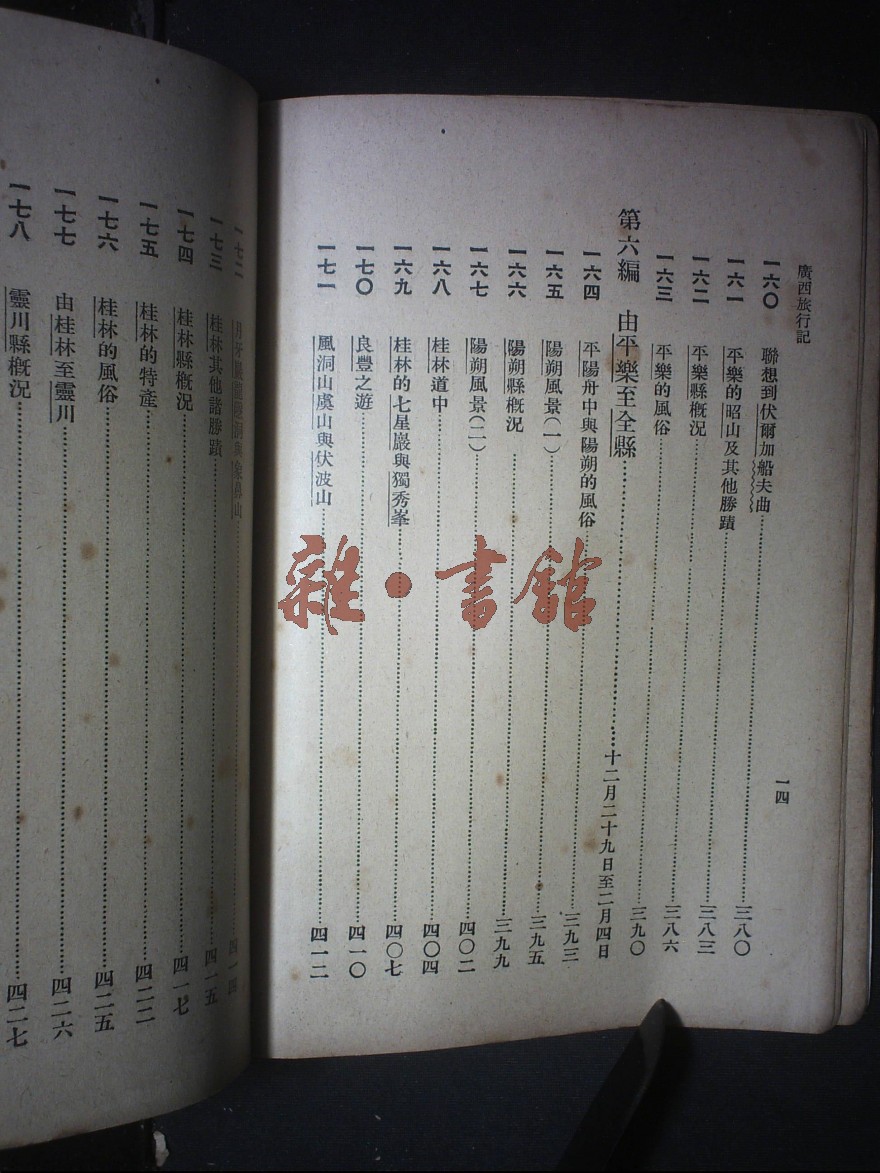 廣西旅行記
一四
一六〇 聯想到伏爾加船夫曲 三八〇
一六一 平樂的昭山及其他勝蹟 三八三
一六二 平樂縣概況 三八六
一六三 平樂的風俗 三九〇
第六編 由平樂至全縣 十二月二十九日至二月四日
一六四 平陽舟中與陽朔的風俗 三九三
一六五 陽朔風景(一) 三九五
一六六 陽朔縣概況 三九九
一六七 陽朔風景(二) 四〇二
一六八 桂林道中 四〇四
一六九 桂林的七星巖與獨秀峯 四〇七
一七〇 良豐之遊 四一〇
一七一 風洞山虞山與伏波山 四一二
一七二 象鼻山 四一四
一七三 桂林其他諸勝蹟 四一五
一七四 桂林縣概況 四一七
一七五 桂林的特產 四二二
一七六 桂林的風俗 四二五
一七七 由桂林至靈川 四二六
一七八 靈川縣概況 四二七
雜·書館